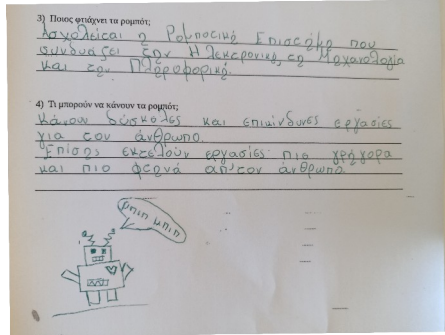 3) Ποιος φτιάχνει τα ρομπότ;
Ασχολείται η Ρομποτική Επιστήμη που
συνδυάζει την Ηλεκτρονική, τη Μηχανολογία
και την Πληροφορική.
4) Τι μπορούν να κάνουν τα ρομπότ;
Κάνουν δύσκολες και επικίνδυνες εργασίες
για τον άνθρωπο.
Επίσης εκτελούν εργασίες πιο γρήγορα
και πιο φτηνά απ'τον άνθρωπο.
μπιπ μπιπ